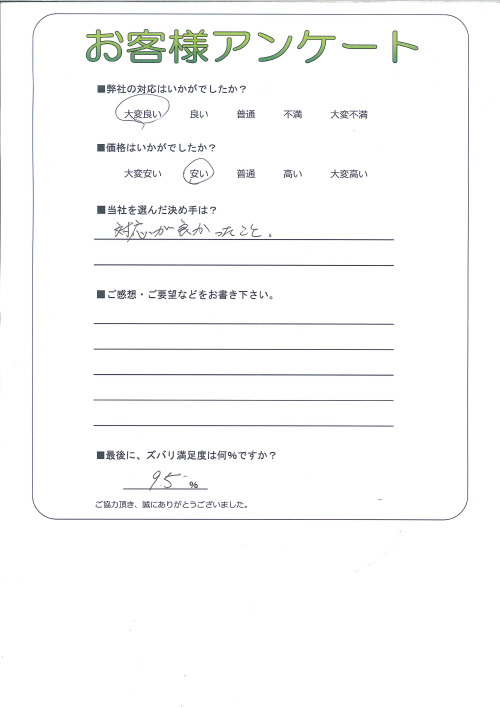 お客様アンケート
■弊社の対応はいかがでしたか？
大変良い 良い 普通 不満 大変不満
■価格はいかがでしたか？
大変安い 安い 普通 高い 大変高い
■当社を選んだ決め手は？
対応が良かったこと。
■ご感想・ご要望などをお書き下さい。
■最後に、ズバリ満足度は何%ですか？
95 %
ご協力頂き、誠にありがとうございました。